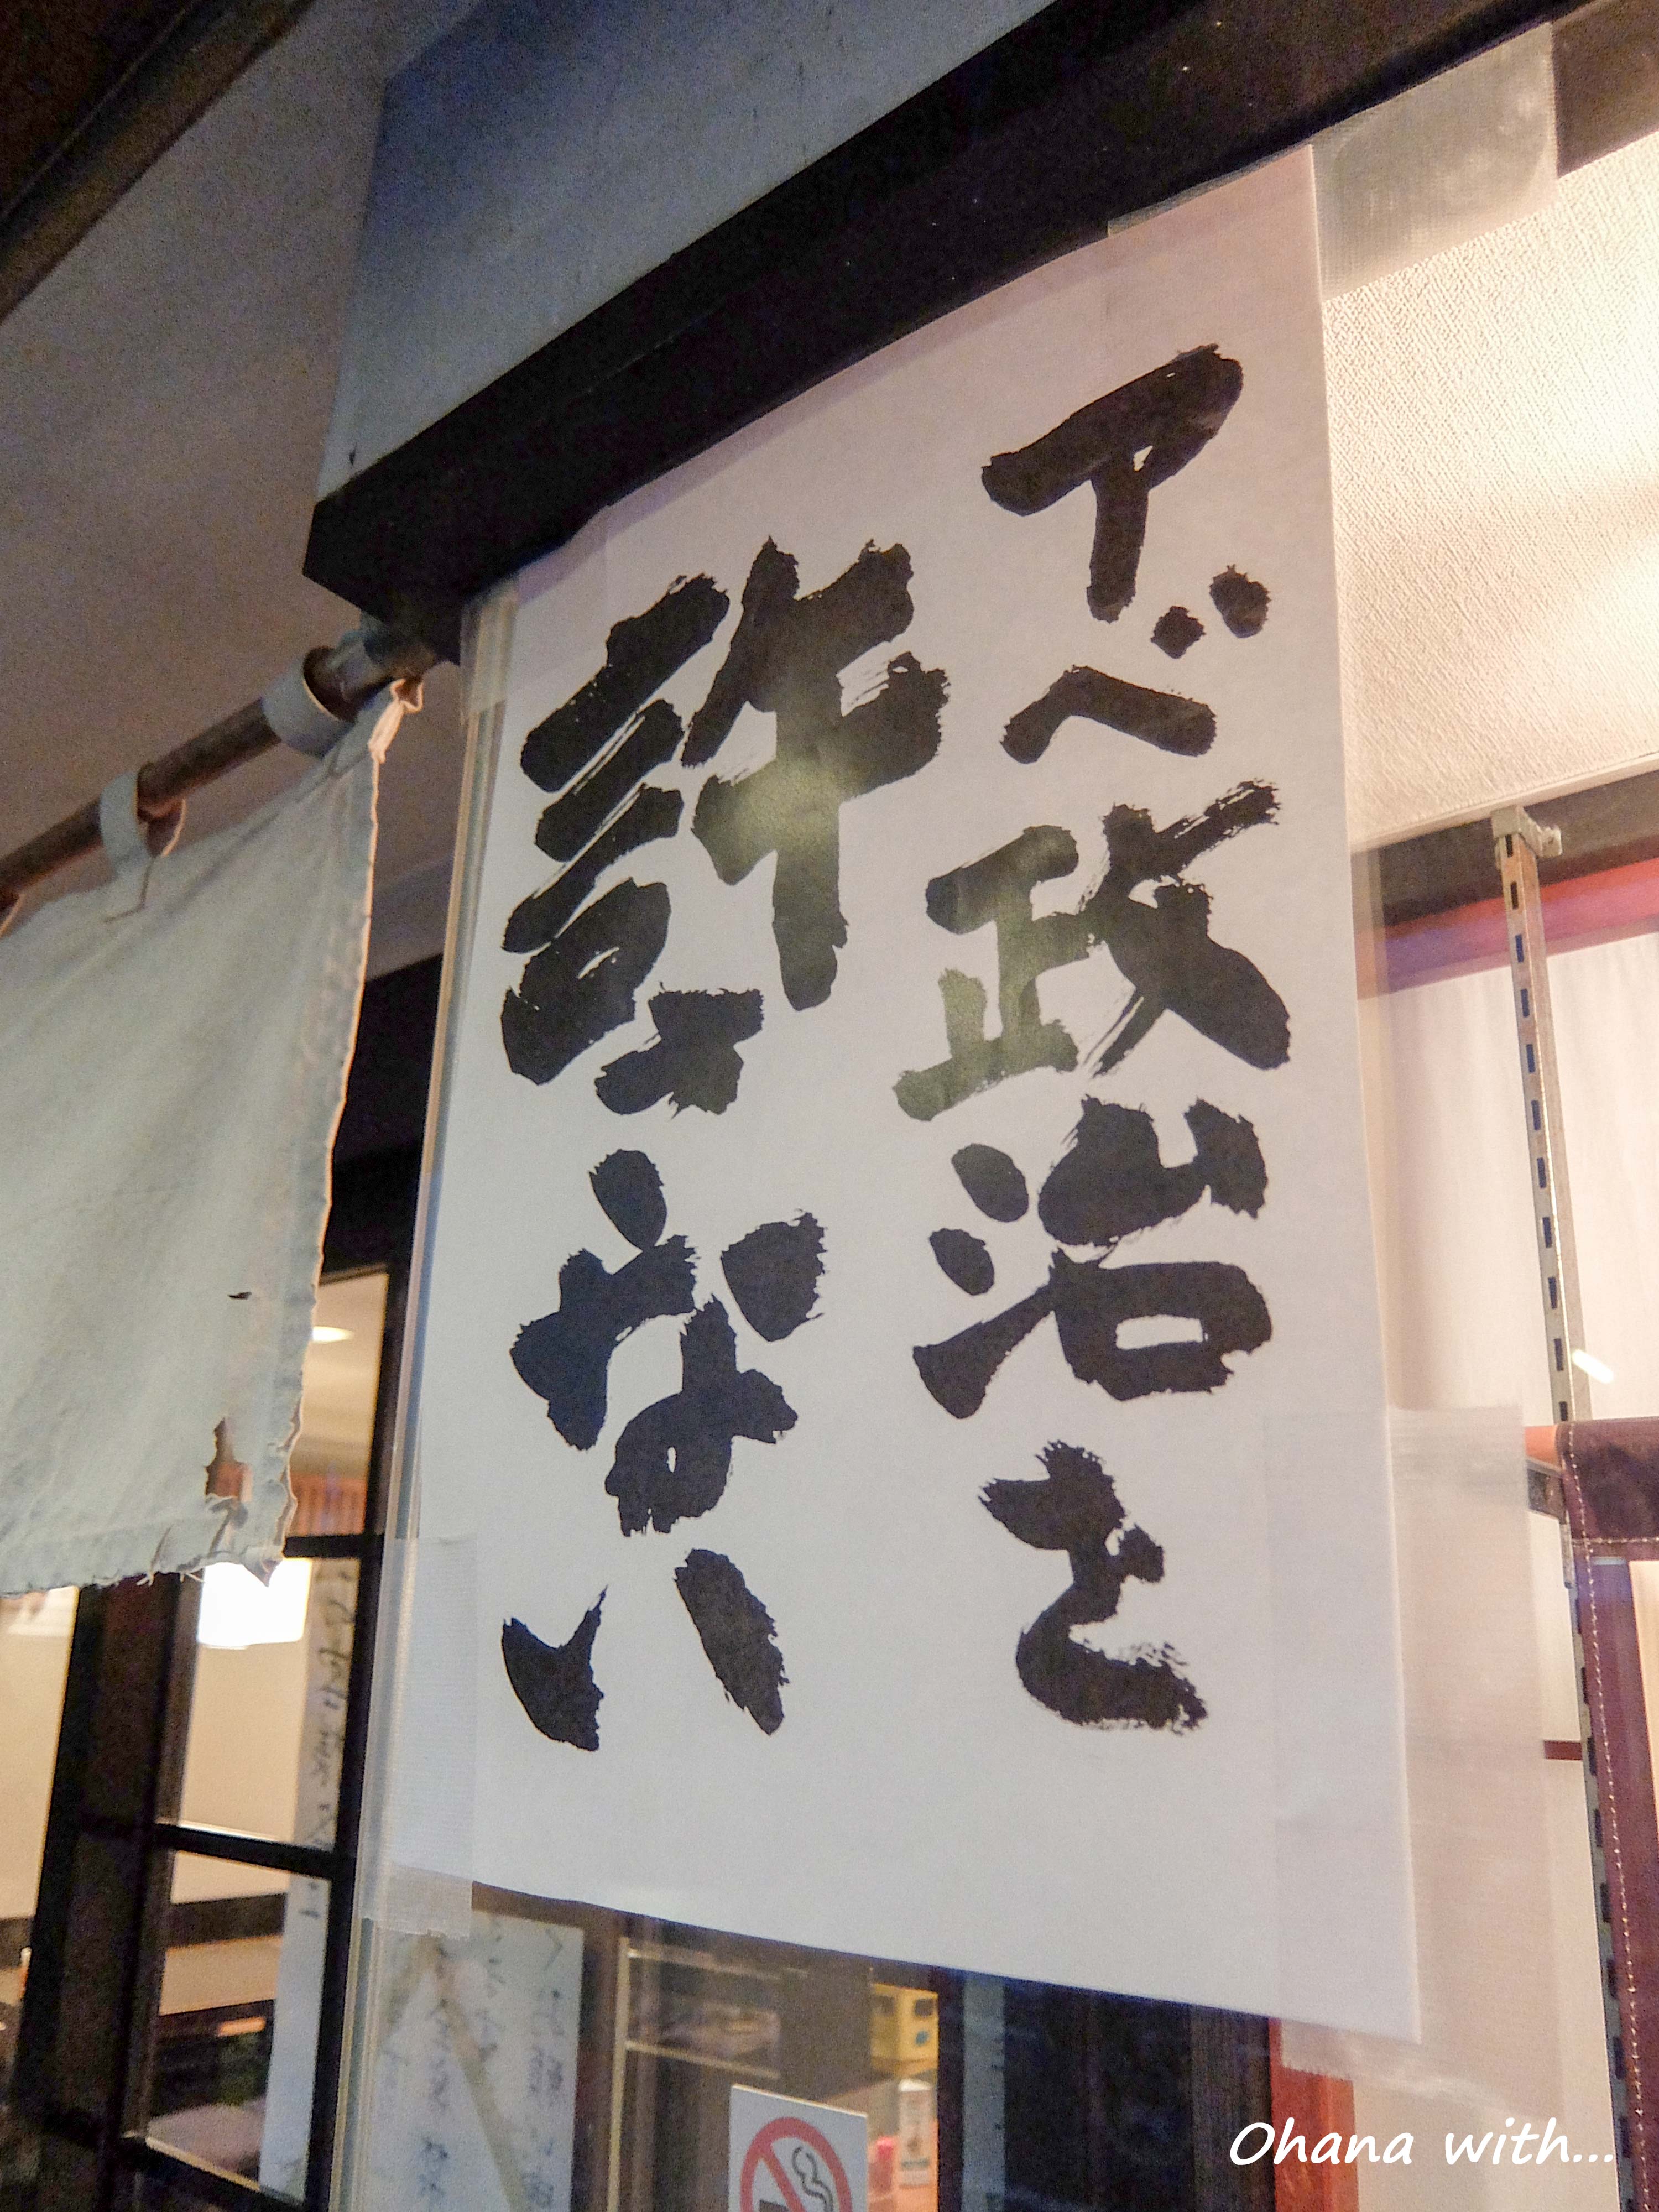 アベ政治を
許さない
Ohana with...